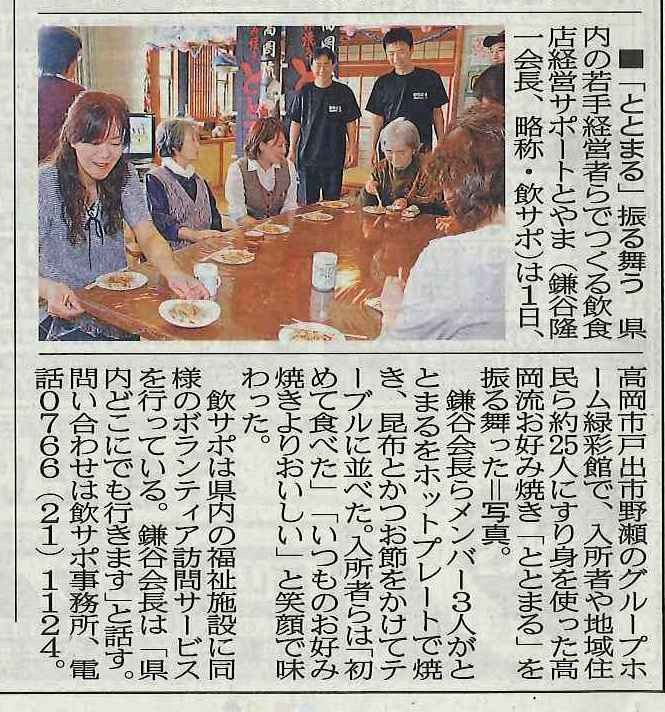 ■「ととまる」振る舞う　県
内の若手経営者らでつくる飲食
店経営サポートとやま（鎌谷隆
一会長、略称・飲サポ）は1日、
高岡市戸出市野瀬のグループホ
ーム緑彩館で、入所者や地域住
民ら約25人にすり身を使った高
岡流お好み焼き「ととまる」を
振る舞った＝写真。
鎌谷会長らメンバー3人がと
とまるをホットプレートで焼
き、昆布とかつお節をかけてテ
ーブルに並べた。入所者らは「初
めて食べた」「いつものお好み
焼きよりおいしい」と笑顔で味
わった。
飲サポは県内の福祉施設に同
様のボランティア訪問サービス
を行っている。鎌谷会長は「県
内どこにでも行きます」と話す。
問い合わせは飲サポ事務所、電
話0766（21）1124。